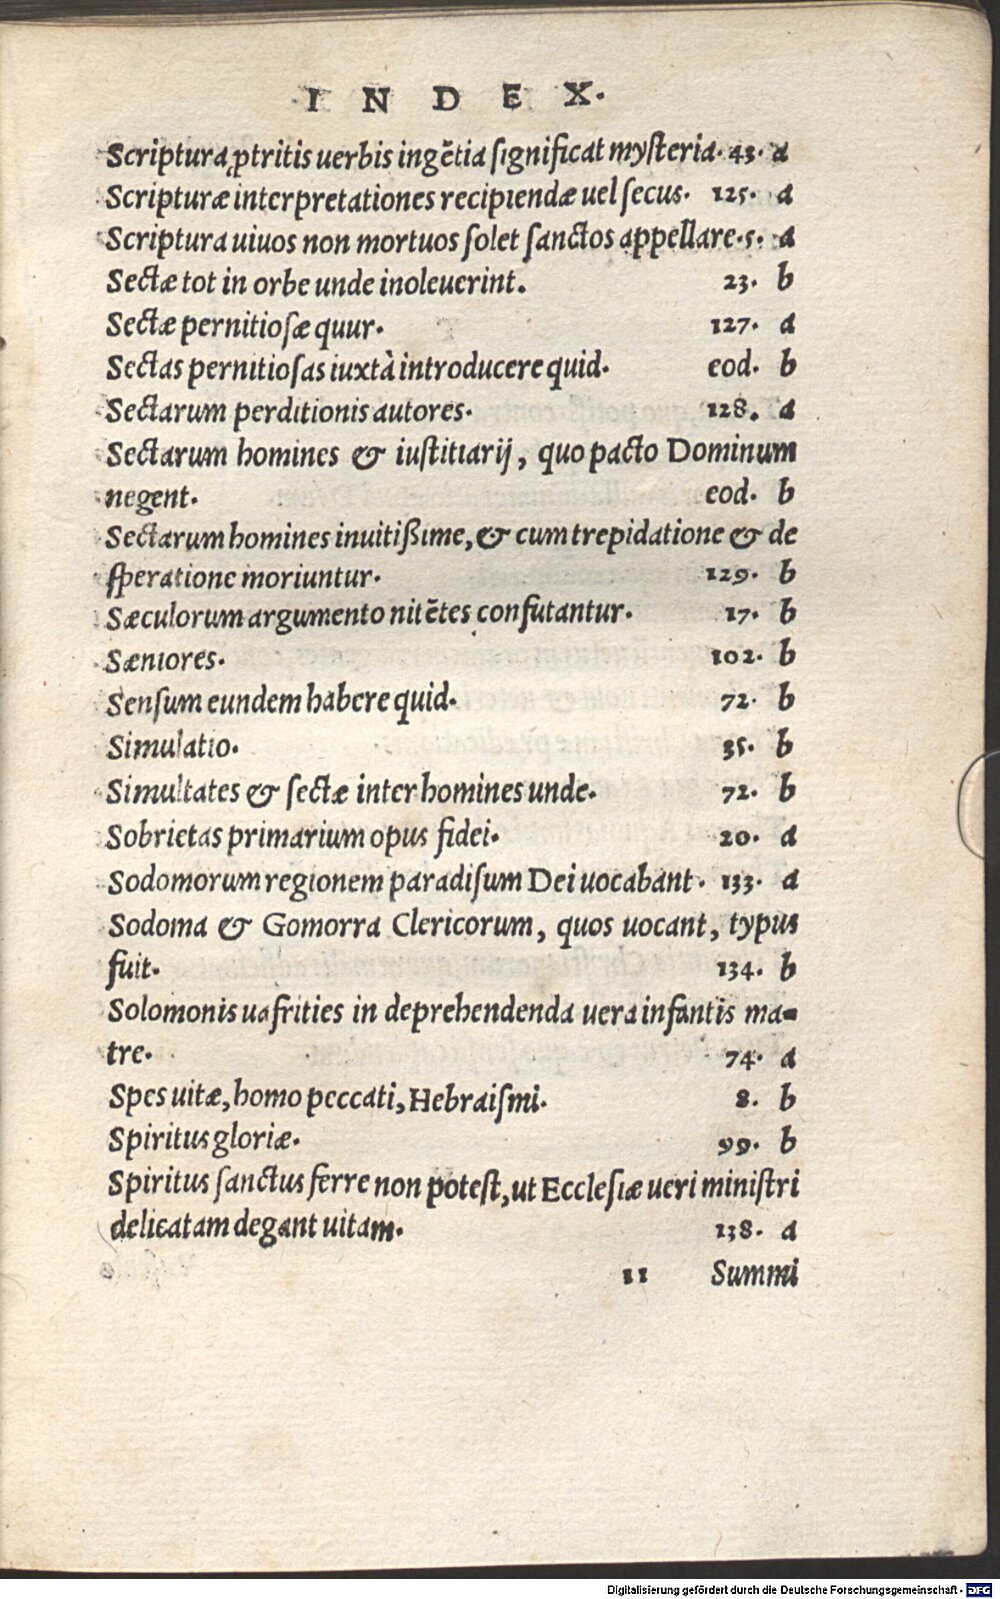 INDEX.
Scriptura ꝓtritis uerbis ingẽtia ſignificat myſteria. 43. a
Scripturæ interpretationes recipiendæ uel ſecus. 125. a
Scriptura uiuos non mortuos ſolet ſanctos appellare. 5. a
Sectæ tot in orbe unde inoleuerint. 23. b
Sectæ pernitioſæ quur. 127. a
Sectas pernitioſas iuxtà introducere quid. eod. b
Sectarum perditionis autores. 128. a
Sectarum homines & iuſtitiarij, quo pacto Dominum
negent. eod. b
Sectarum homines inuitißime, & cum trepidatione & de
ſperatione moriuntur. 129. b
Sæculorum argumento nitẽtes confutantur. 17. b
Sæniores. 102. b
Senſum eundem habere quid. 72. b
Simulatio. 35. b
Simultates & ſectæ inter homines unde. 72. b
Sobrietas primarium opus fidei. 20. a
Sodomorum regionem paradiſum Dei uocabant. 133. a
Sodoma & Gomorra Clericorum, quos uocant, typus
fuit. 134. b
Solomonis uafrities in deprehendenda uera infantis ma-
tre. 74. a
Spes uitæ, homo peccati, Hebraiſmi. 8. b
Spiritus gloriæ. 99. b
Spiritus ſanctus ferre non poteſt, ut Eccleſiæ ueri miniſtri
delicatam degant uitam. 138. a
11 Summi
Digitalisierung gefördert durch die Deutsche Forschungsgemeinschaft - DFG